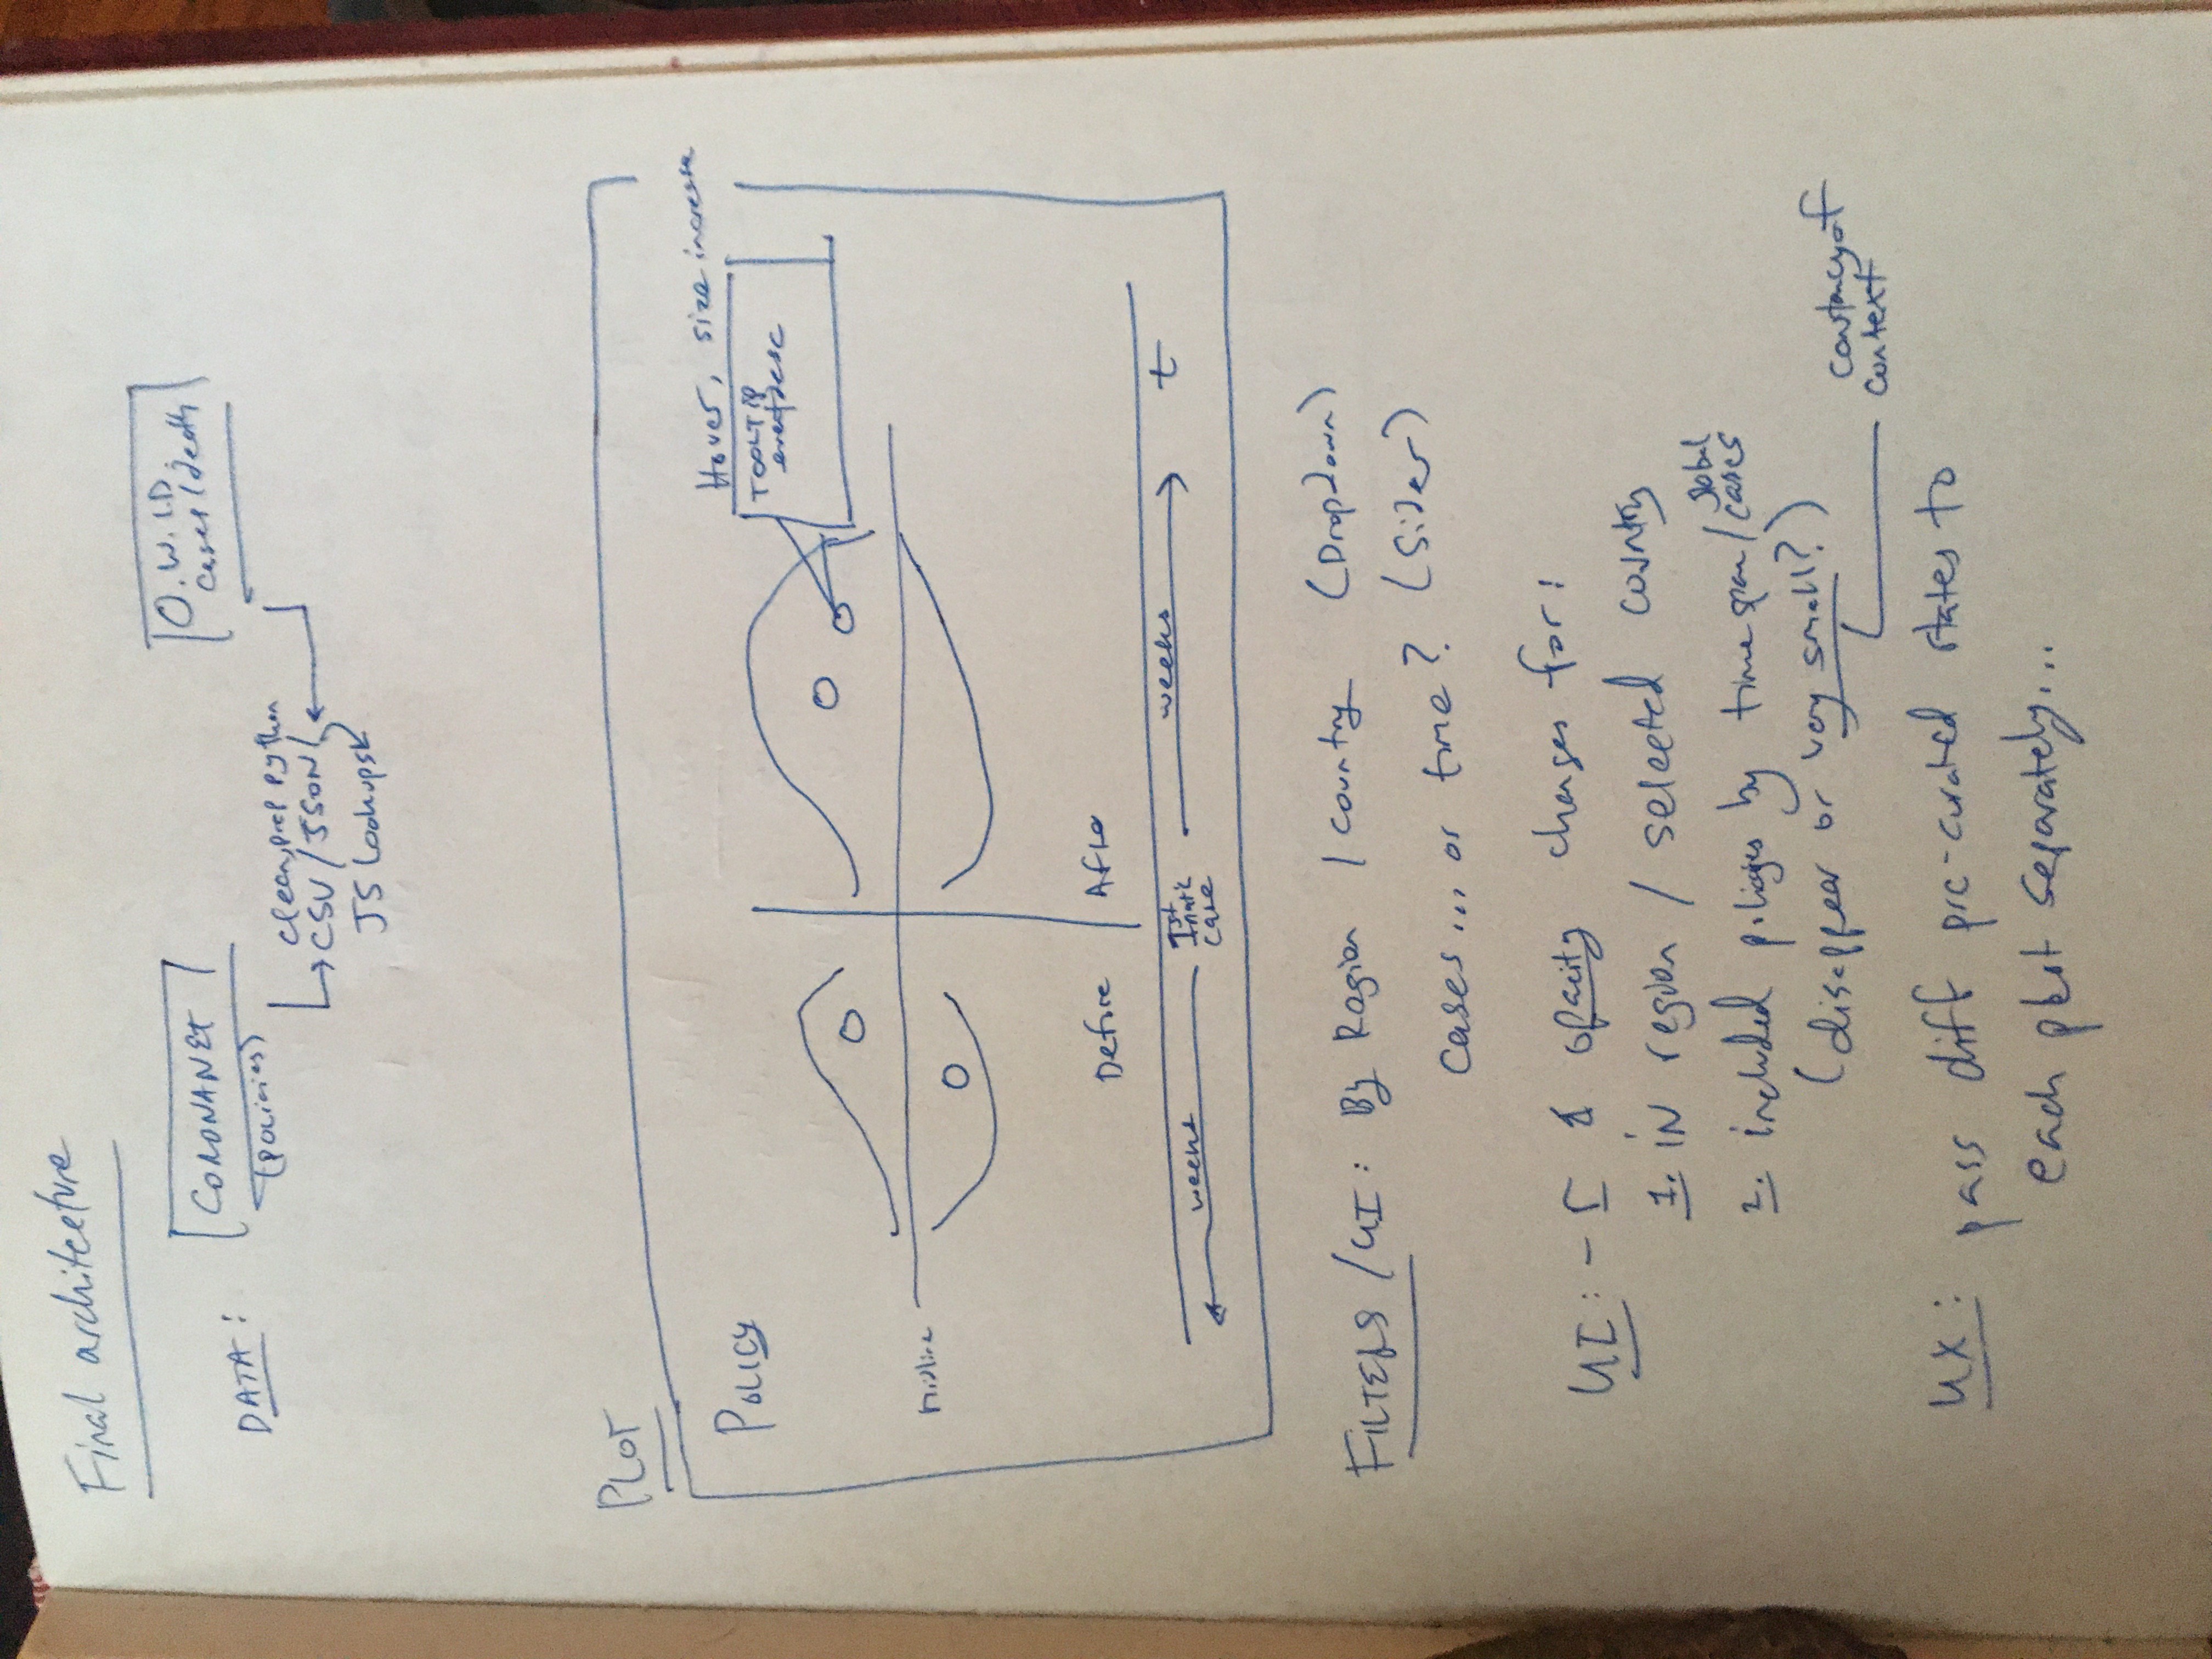 Final architecture
DATA:
CORONANET
(policies)
O.W.I.D.
cases/death
clean, prep python
CSV / JSON /
JS Lookups
PLOT
POLICY
Hover, size increase
TOOLTIP
event desc
Midline
Before
After
weeks
1st
case
weeks
t
FILTERS / UI: By Region / country (Dropdown)
cases... or time? (Slider)
UI: - r & opacity changes for:
1. IN region / selected country
2. included policies by time span / global cases
(disappear or very small?)
context
UX: pass diff pre-curated states to
each plot separately...